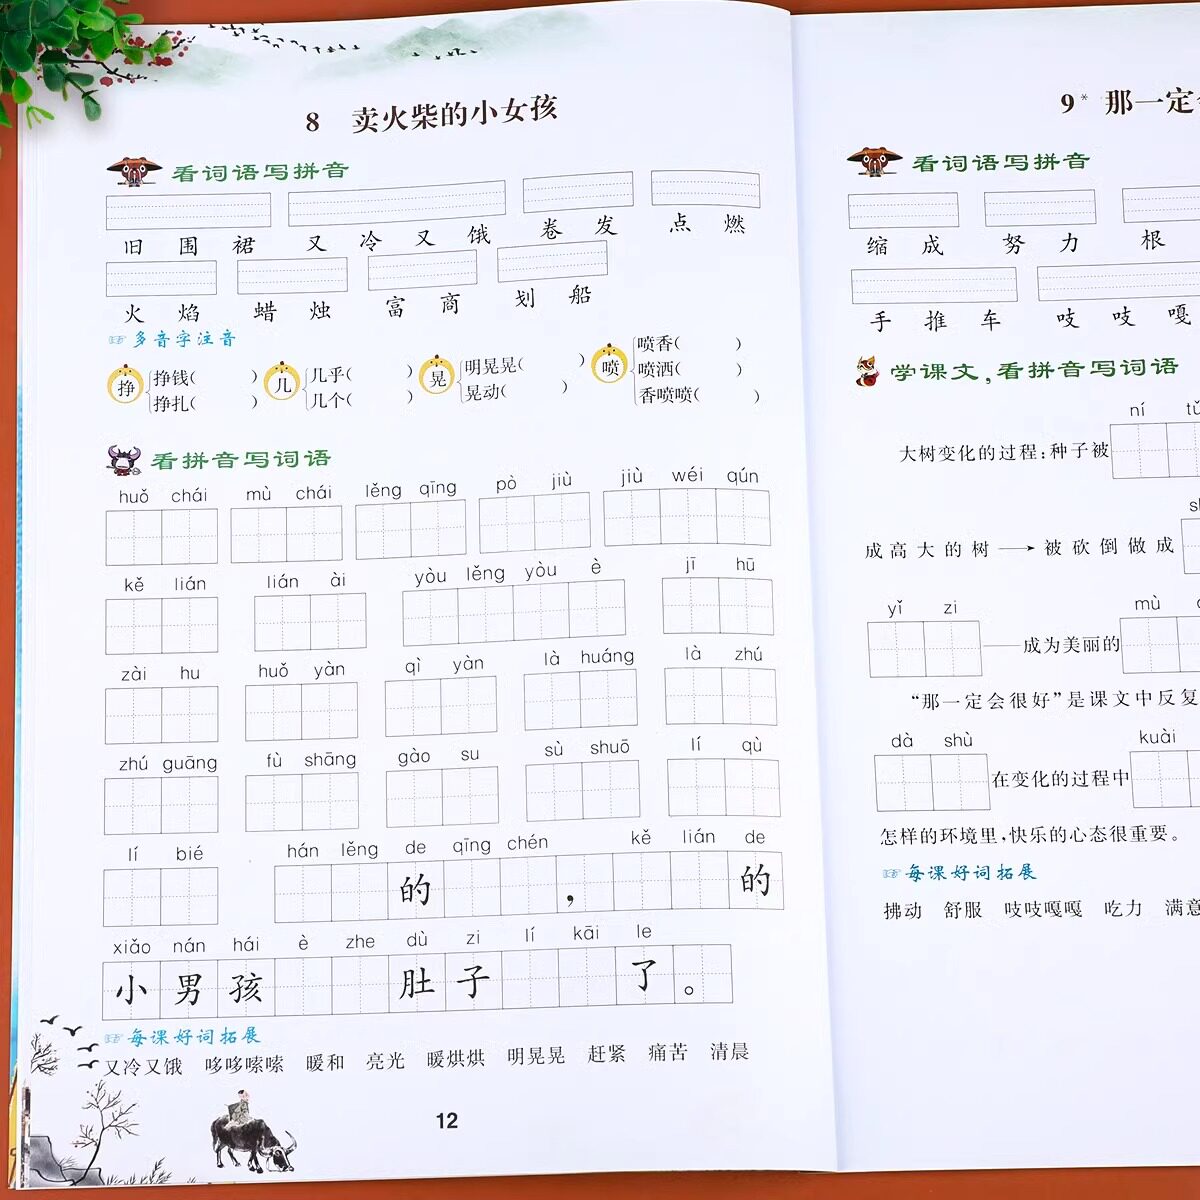 8 卖火柴的小女孩
看词语写拼音
旧围裙 又冷又饿 卷发 点燃
火焰 蜡烛 富商 划船
多音字注音
挣 挣钱( ) 挣扎( ) 几 几乎( ) 几个( ) 晃 明晃晃( ) 晃动( ) 喷 喷香( ) 喷洒( ) 香喷喷( )
看拼音写词语
huǒ chái mù chái lěng qīng pò jiù jiù wéi qún
kě lián lián ài yòu lěng yòu è jī hū
zài hu huǒ yàn qì yàn là huáng là zhú
zhú guāng fù shāng gào su sù shuō lí qù
lí bié hán lěng de qīng chén kě lián de
的 , 的
xiǎo nán hái è zhe dù zi lí kāi le
小男孩 肚子 了 。
每课好词拓展
又冷又饿 哆哆嗦嗦 暖和 亮光 暖烘烘 明晃晃 赶紧 痛苦 清晨
12
9* 那一定
看词语写拼音
缩成 努力 根
手推车 吱吱嘎
学课文,看拼音写词语
ní
大树变化的过程:种子被
成高大的树 → 被砍倒做成
yǐ zi mù
——成为美丽的
“那一定会很好”是课文中反复
dà shù kuài
在变化的过程中
怎样的环境里,快乐的心态很重要。
每课好词拓展
拂动 舒服 吱吱嘎嘎 吃力 满意